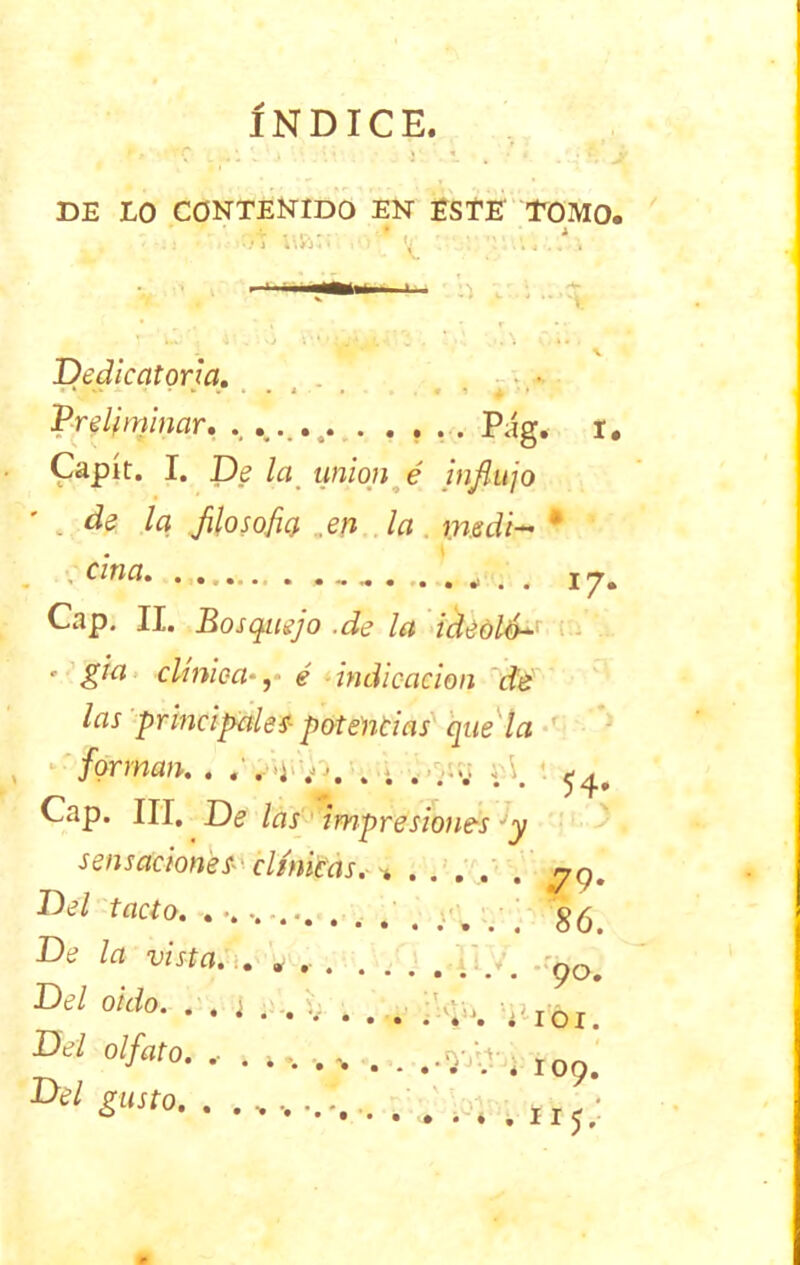 ÍNDICE.
DE LO CONTENIDO EN ESTE TOMO.
Dedicatoria.
Preliminar. . . . . . . . . . . . . Pág. 1.
Capít. I. De la union é influjo
de la filosofia en la medi-
cina. . . . . . . . . . . . . . . . . 17.
Cap. II. Bosquejo de la ideoló-
gia clínica, é indicacion de
las principales potencias que la
forman. . . . . . . . . . . . . . . 54.
Cap. III. De las impresiones y
sensaciones clínicas. . . . . . . 79.
Del tacto. . . . . . . . . . . . . . . 86.
De la vista. . . . . . . . . . . . . . 90.
Del oido. . . . . . . . . . . . . . . 101.
Del olfato. . . . . . . . . . . . . . 109.
Del gusto. . . . . . . . . . . . . . . 115.